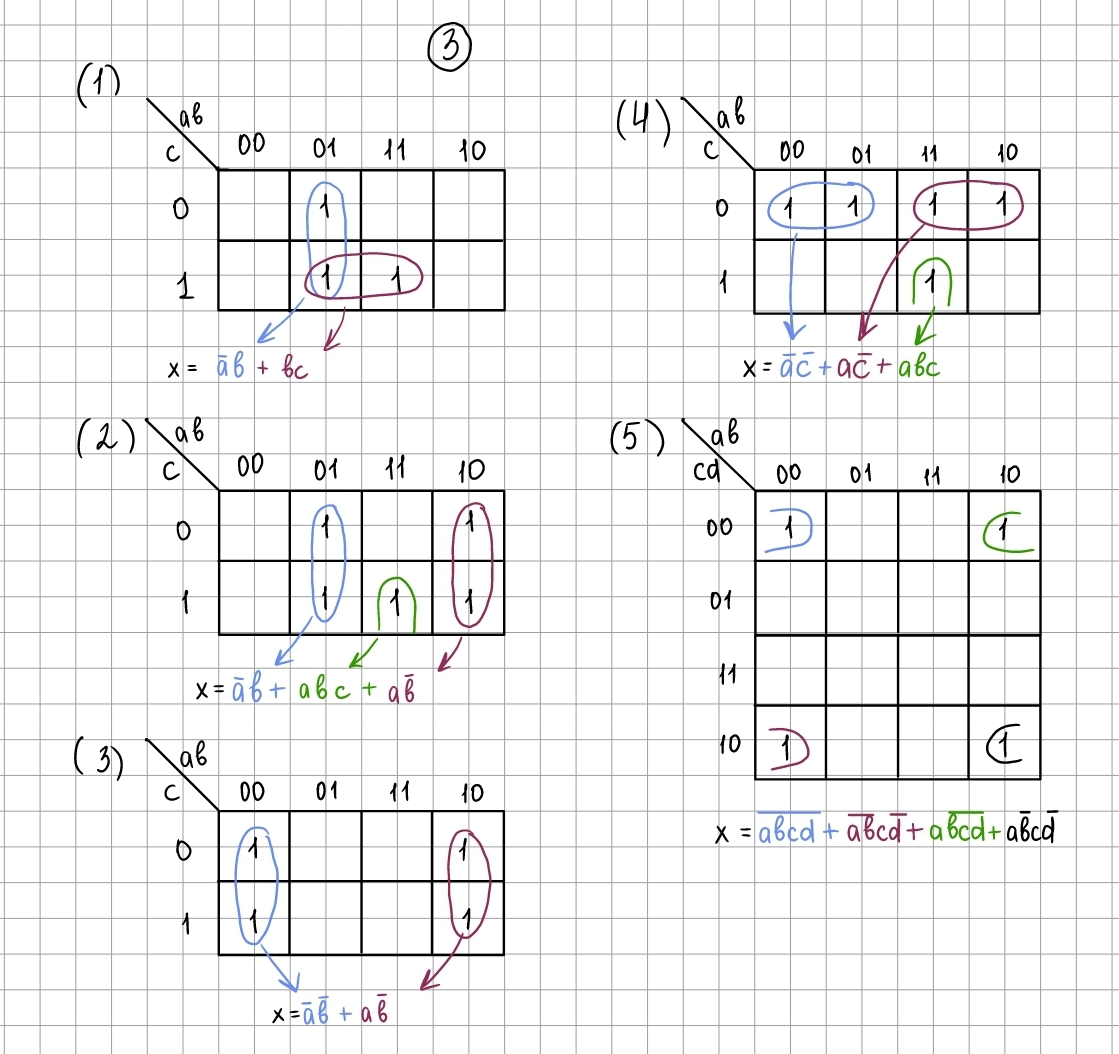 ③
(1)
ab
c 00 01 11 10
0 1
1 1 1
x = āb + bc
(2)
ab
c 00 01 11 10
0 1 1
1 1 1 1
x = āb + abc + ab̄
(3)
ab
c 00 01 11 10
0 1 1
1 1 1
x = āb̄ + ab̄
(4)
ab
c 00 01 11 10
0 1 1 1 1
1 1
x = āc̄ + ac̄ + abc
(5)
ab
cd 00 01 11 10
00 1 1
01
11
10 1 1
x = a̅b̅c̅d̅ + a̅b̅cd̅ + ab̅c̅d̅ + ab̅cd̅